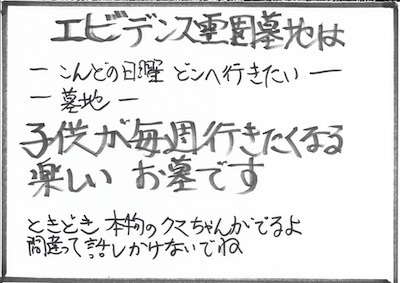 エビデンス霊園墓地は
— こんどの日曜 どこへ行きたい —
— 墓地 —
子供が毎週行きたくなる
楽しい お墓です
ときどき 本物のクマちゃんがでるよ
間違って話しかけないでね